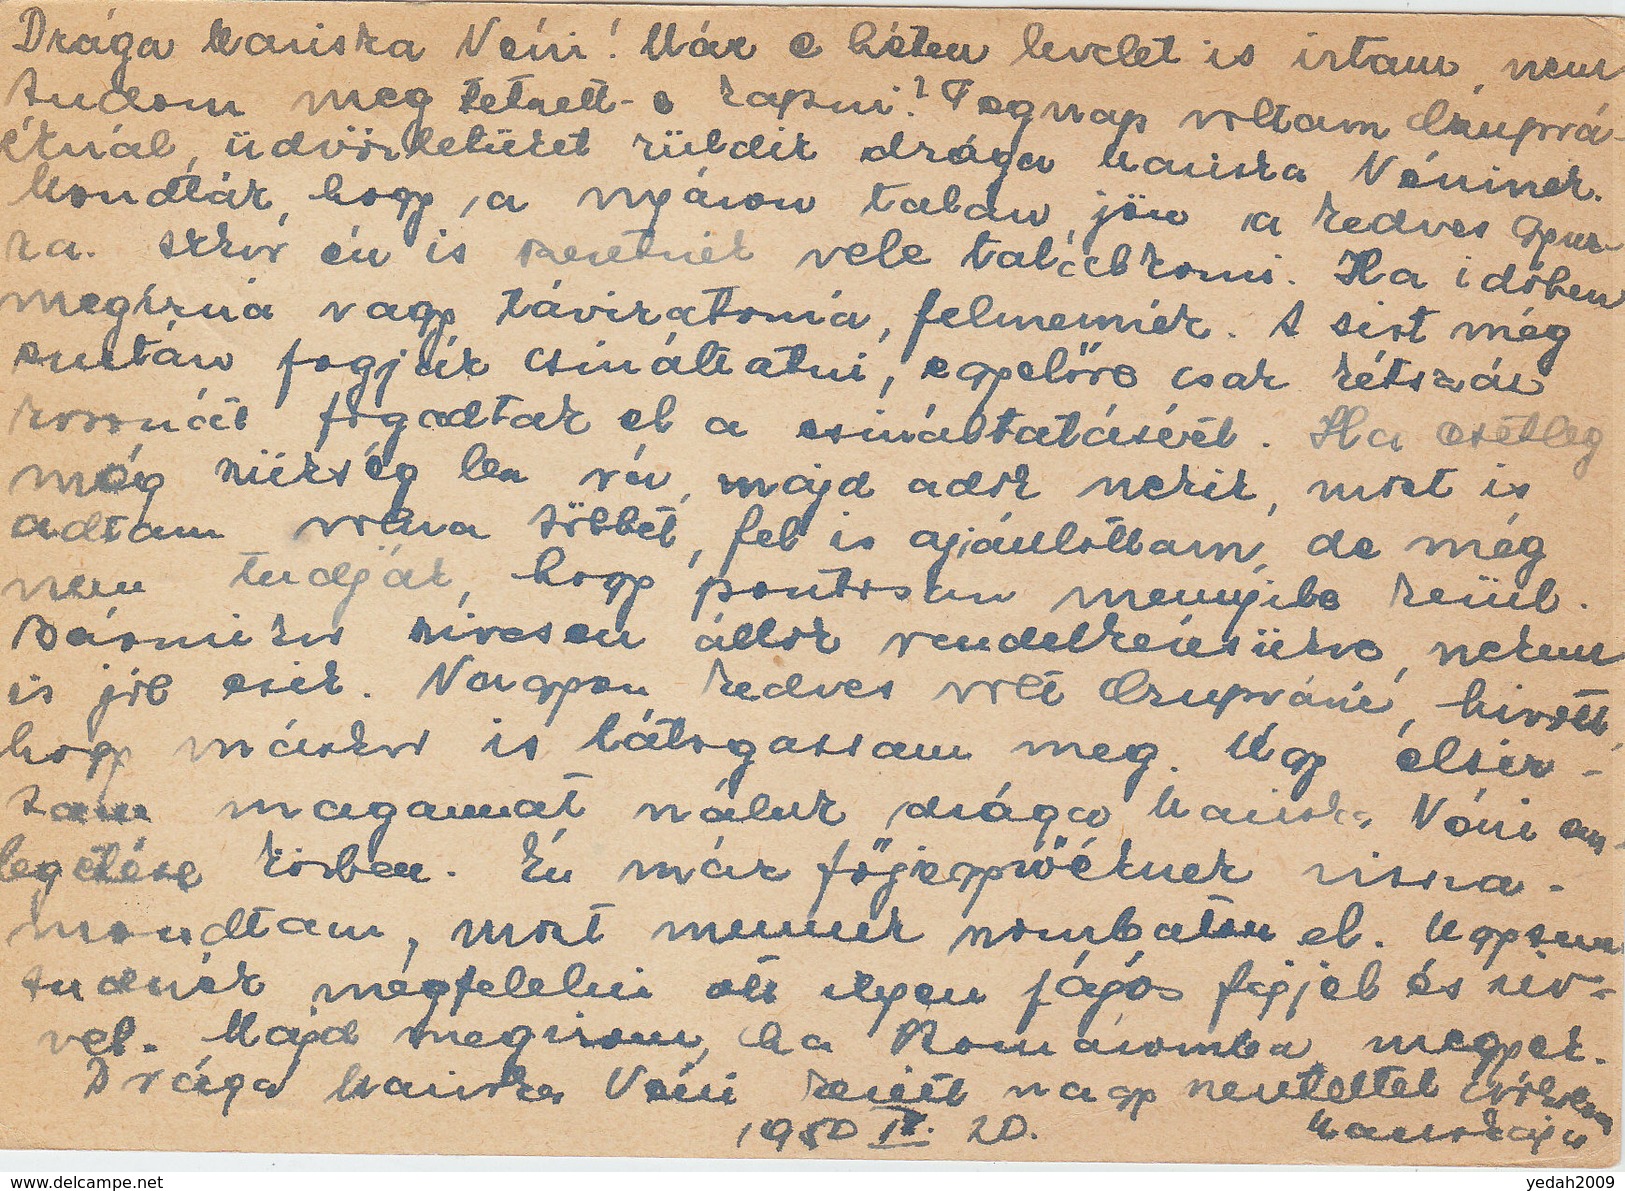 Drága Mariska Néni! Már e héten levelet is irtam, nem
tudom meg tetszett-e kapni? Tegnap voltam Czupyvá-
éknál, üdvözletüket küldik drága Mariska Néninek.
Mondták, hogy, a nyáron talán jön a kedves Gyur-
ka. Akkor én is szeretnék vele találkozni. Ha időben
megírná vagy táviratozná, felmennék. A sirt még
ezután fogják csináltatni, egyelőre csak kétszáz
koronát fogadtak el a csináltatásért. Ha esetleg
még szükség lesz rá, majd adok nekik, most is
adtam volna többet, fel is ajánlottam, de még
nem tudják, hogy pontosan mennyibe kerül.
Bármikor szivesen állok rendelkezésükre, nekem
is jól esik. Nagyon kedves volt Czupyváné, hivott,
hogy máskor is látogassam meg. Ugy elsir-
tam magamat náluk, drága Mariska Néni em-
legetése közben. Én már főjegyzőéknek vissza-
mondtam, most megyek szombaton el. Ugysem
tudnék megfelelni ott ilyen fájós fejjel és szív-
vel. Majd megirom, ha Komáromba megyek.
Drága Mariska Néni kezét nagy szeretettel csókolom
1950 IV. 20. Mariskája
yedah2009
www.delcampe.net